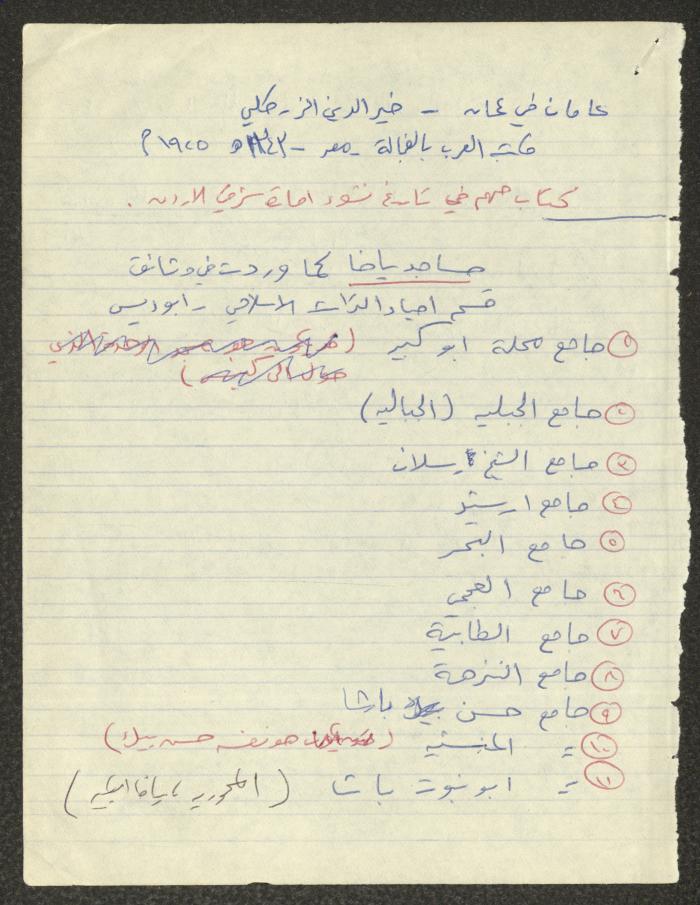 عامان في عمان - خير الدين الزركلي
مكتبة العرب بالفجالة - مصر - ١٣٤٣ هـ ١٩٢٥ م
كتاب مهم في تاريخ نشوء امارة شرق الاردن .
مساجد يافا كما وردت في وثائق
قسم احياء التراث الاسلامي - ابوديس
١ جامع محلة ابو كبير
٢ جامع الجبليه (الجباليه)
٣ جامع الشيخ رسلان
٤ جامع ارشيد
٥ جامع البحر
٦ جامع العجمي
٧ جامع الطابية
٨ جامع النزهة
٩ جامع حسن باشا
١٠ = المنشيه ( هو نفسه حسن بيك)
١١ = ابو نبوت باشا ( المحموديه ، يافا )